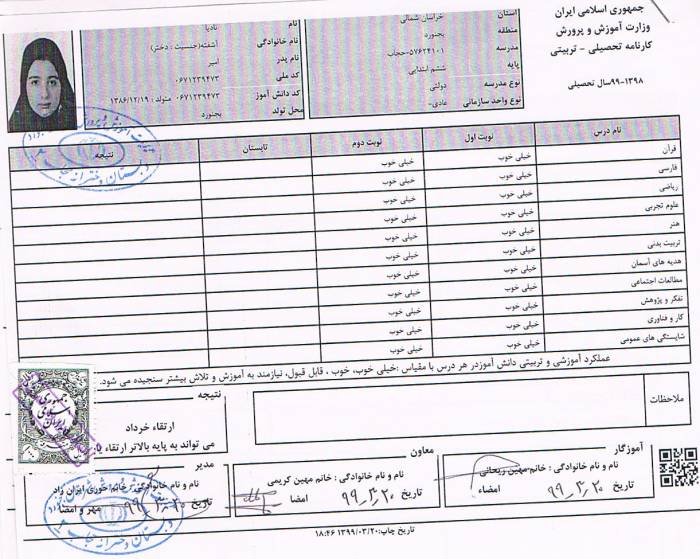 جمهوری اسلامی ایران
وزارت آموزش و پرورش
کارنامه تحصیلی - تربیتی
۹۹-۱۳۹۸سال تحصیلی
استان خراسان شمالی
منطقه بجنورد
مدرسه ۵۷۶۲۴۱۰۱-حجاب
پایه ششم ابتدایی
نوع مدرسه دولتی
نوع واحد سازمانی عادی-
نام نادیا
نام خانوادگی آشفته(جنسیت : دختر)
نام پدر امیر
کد ملی ۰۶۷۱۲۳۹۴۷۳
کد دانش آموز ۰۶۷۱۲۳۹۴۷۳ متولد : ۱۳۸۶/۱۲/۱۹
محل تولد بجنورد
نام درس نوبت اول نوبت دوم تابستان نتیجه
قرآن خیلی خوب خیلی خوب
فارسی خیلی خوب خیلی خوب
ریاضی خیلی خوب خیلی خوب
علوم تجربی خیلی خوب خیلی خوب
هنر خیلی خوب خیلی خوب
تربیت بدنی خیلی خوب خیلی خوب
هدیه های آسمان خیلی خوب خیلی خوب
مطالعات اجتماعی خیلی خوب خیلی خوب
تفکر و پژوهش خیلی خوب خیلی خوب
کار و فناوری خیلی خوب خیلی خوب
شایستگی های عمومی خیلی خوب خیلی خوب
عملکرد آموزشی و تربیتی دانش آموزدر هر درس با مقیاس :خیلی خوب، خوب ، قابل قبول، نیازمند به آموزش و تلاش بیشتر سنجیده می شود.
ملاحظات
نتیجه
ارتقاء خرداد
می تواند به پایه بالاتر ارتقاء یابد
آموزگار
نام و نام خانوادگی : خانم مهین ریحانی
امضاء تاریخ ۹۹/۳/۲۰
معاون
نام و نام خانوادگی : خانم مهین کریمی
امضا تاریخ ۹۹/۳/۲۰
مدیر
نام و نام خانوادگی : خانم حوری ایران راد
مهر و امضا تاریخ ۹۹/۳/۲۰
تاریخ چاپ:۱۳۹۹/۰۳/۲۰ ۱۸:۴۶